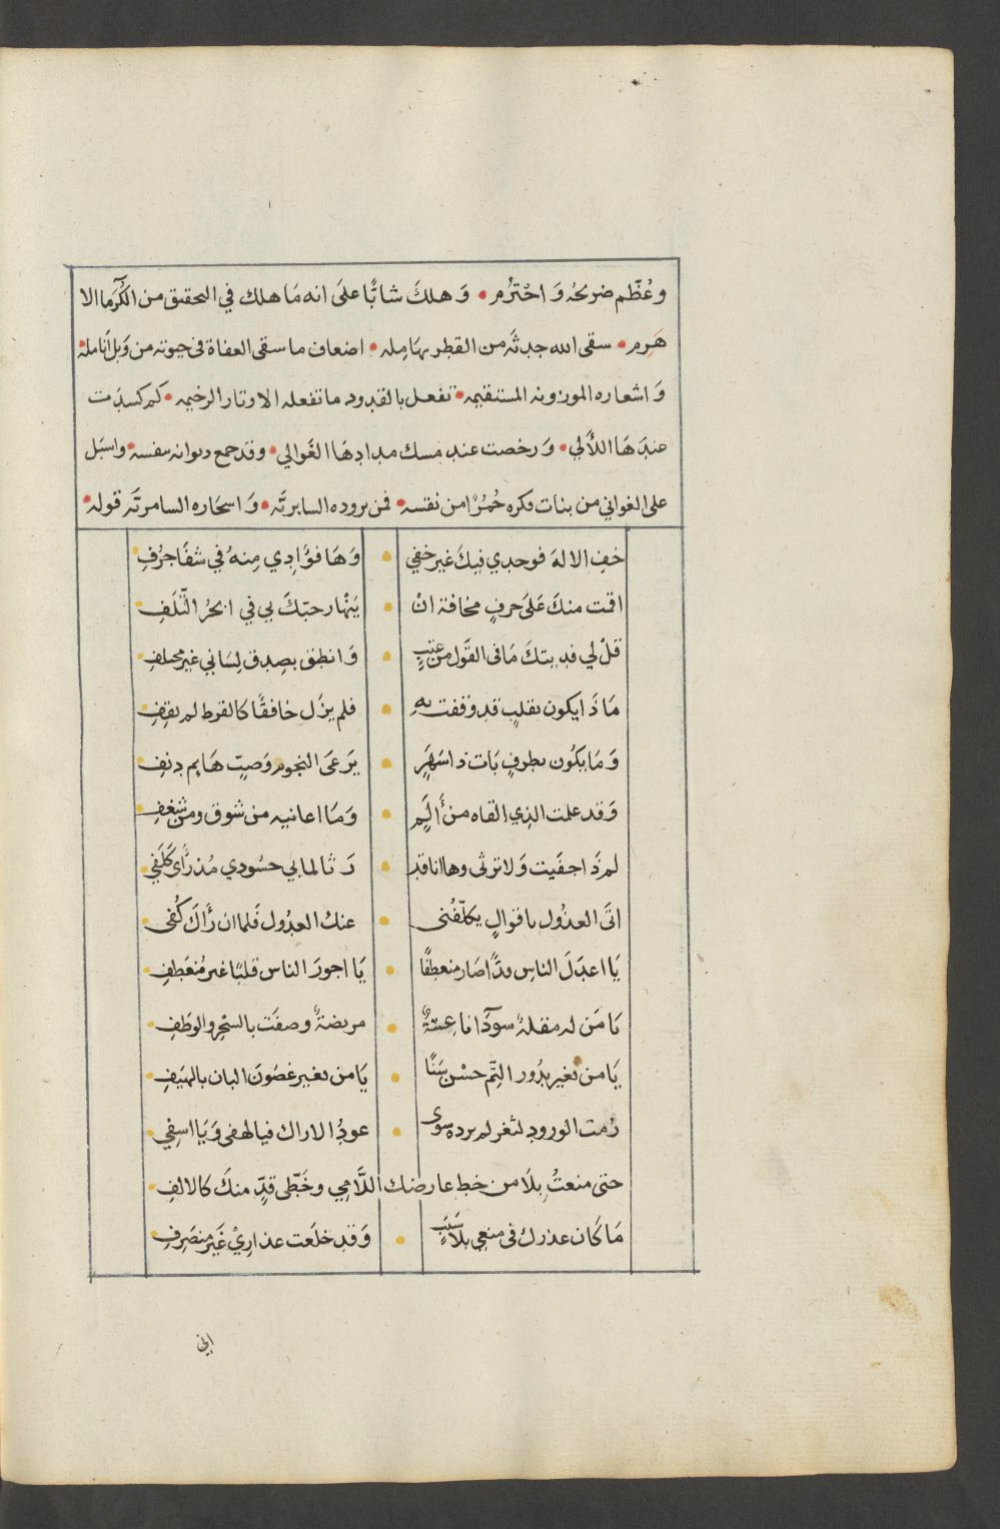 وعُظّم ضريحُه وَ احْترُم • وَ هلكَ شابًّا علَى انه مَا هلك في التحقيق من الكُرَما الا
هَرم • سقى الله جدثَه من القطر بهَامِله • اضعاف ما سقى العفاة في حيوته من وَبل أنامله •
وَ اشعاره الموزونه المستقيمه • تفعل بالقدود ما تفعله الاوتار الرخيمه • كم كسدَت
عندَهَا اللآلي • وَ رخصت عند مسك مدادِهَا الغَوالي • وقد جمع ديوانه بنفسه • واسبَل
على الغواني من بنات فكره خُمُرًا من نقسه • فمن بروده السابريَّه • وَ اسحَاره السامريَّه قوله •
خفِ الالهَ فوجدي فيكَ غير خفي • وَهَا فؤَادِي مِنهُ في شفَا جرُفِ •
اقمت منكَ عَلى حرفٍ مخافة انْ • يَنْهار حبّكَ بي في ابحُر التّلَفِ •
قلْ لي فديتكَ مَا في القَول من عَتبٍ • وَ انطق بصِدق لِسَاني غير مختلفِ •
مَا ذَا يكون بقلبٍ قد وقفت بهِ • فلم يزَل خافقًا كالقرط لم يقفِ •
وَ مَا يكُون بطرفٍ بَات ذا سَهَرٍ • يَرعَى النجوم وَصبٍّ هَايم دنِف •
وَ قد علمت الذِي القاه من أَلَمٍ • وَ مَا اعانيه من شوق ومن شغفِ •
لم ذَا جفَيت وَ لا ترثى وها انا قد • رَ ثا لما بي حسُودي مُذ رَأى كَلَفي •
اتَى العذُول باقوالٍ يكلّفُنى • عنك العذُول فَلما ان رَأَكَ كُفى
يَا اعدَلَ الناس قدًّا صَار منعطفًا • يَا اجورَ الناس قلبًا غير مُنعَطِفِ •
يَا مَن له مقلةٌ سودَا ناعسَةٌ • مريضةٌ وصفَت بالسِّحْرِ والوَطَفِ •
يَا من بغير بدُور التِّم حسْن سَنًا • يَا من بغير غصُونَ البان بالهيَفِ •
رُمت الورود لثغر لم يرده سوى • عودُ الاراك فيا لهفي وَ يَا اسِفي •
حتى منعتُ بلَا من خط عارضك اللَّامِي وخَطّى قدٍّ منكَ كالالفِ •
مَا كَان عذرك في منعِي بلا سَبَبٍ • وَ قد خلَعت عذارِيْ غَير منصَرِفِ •